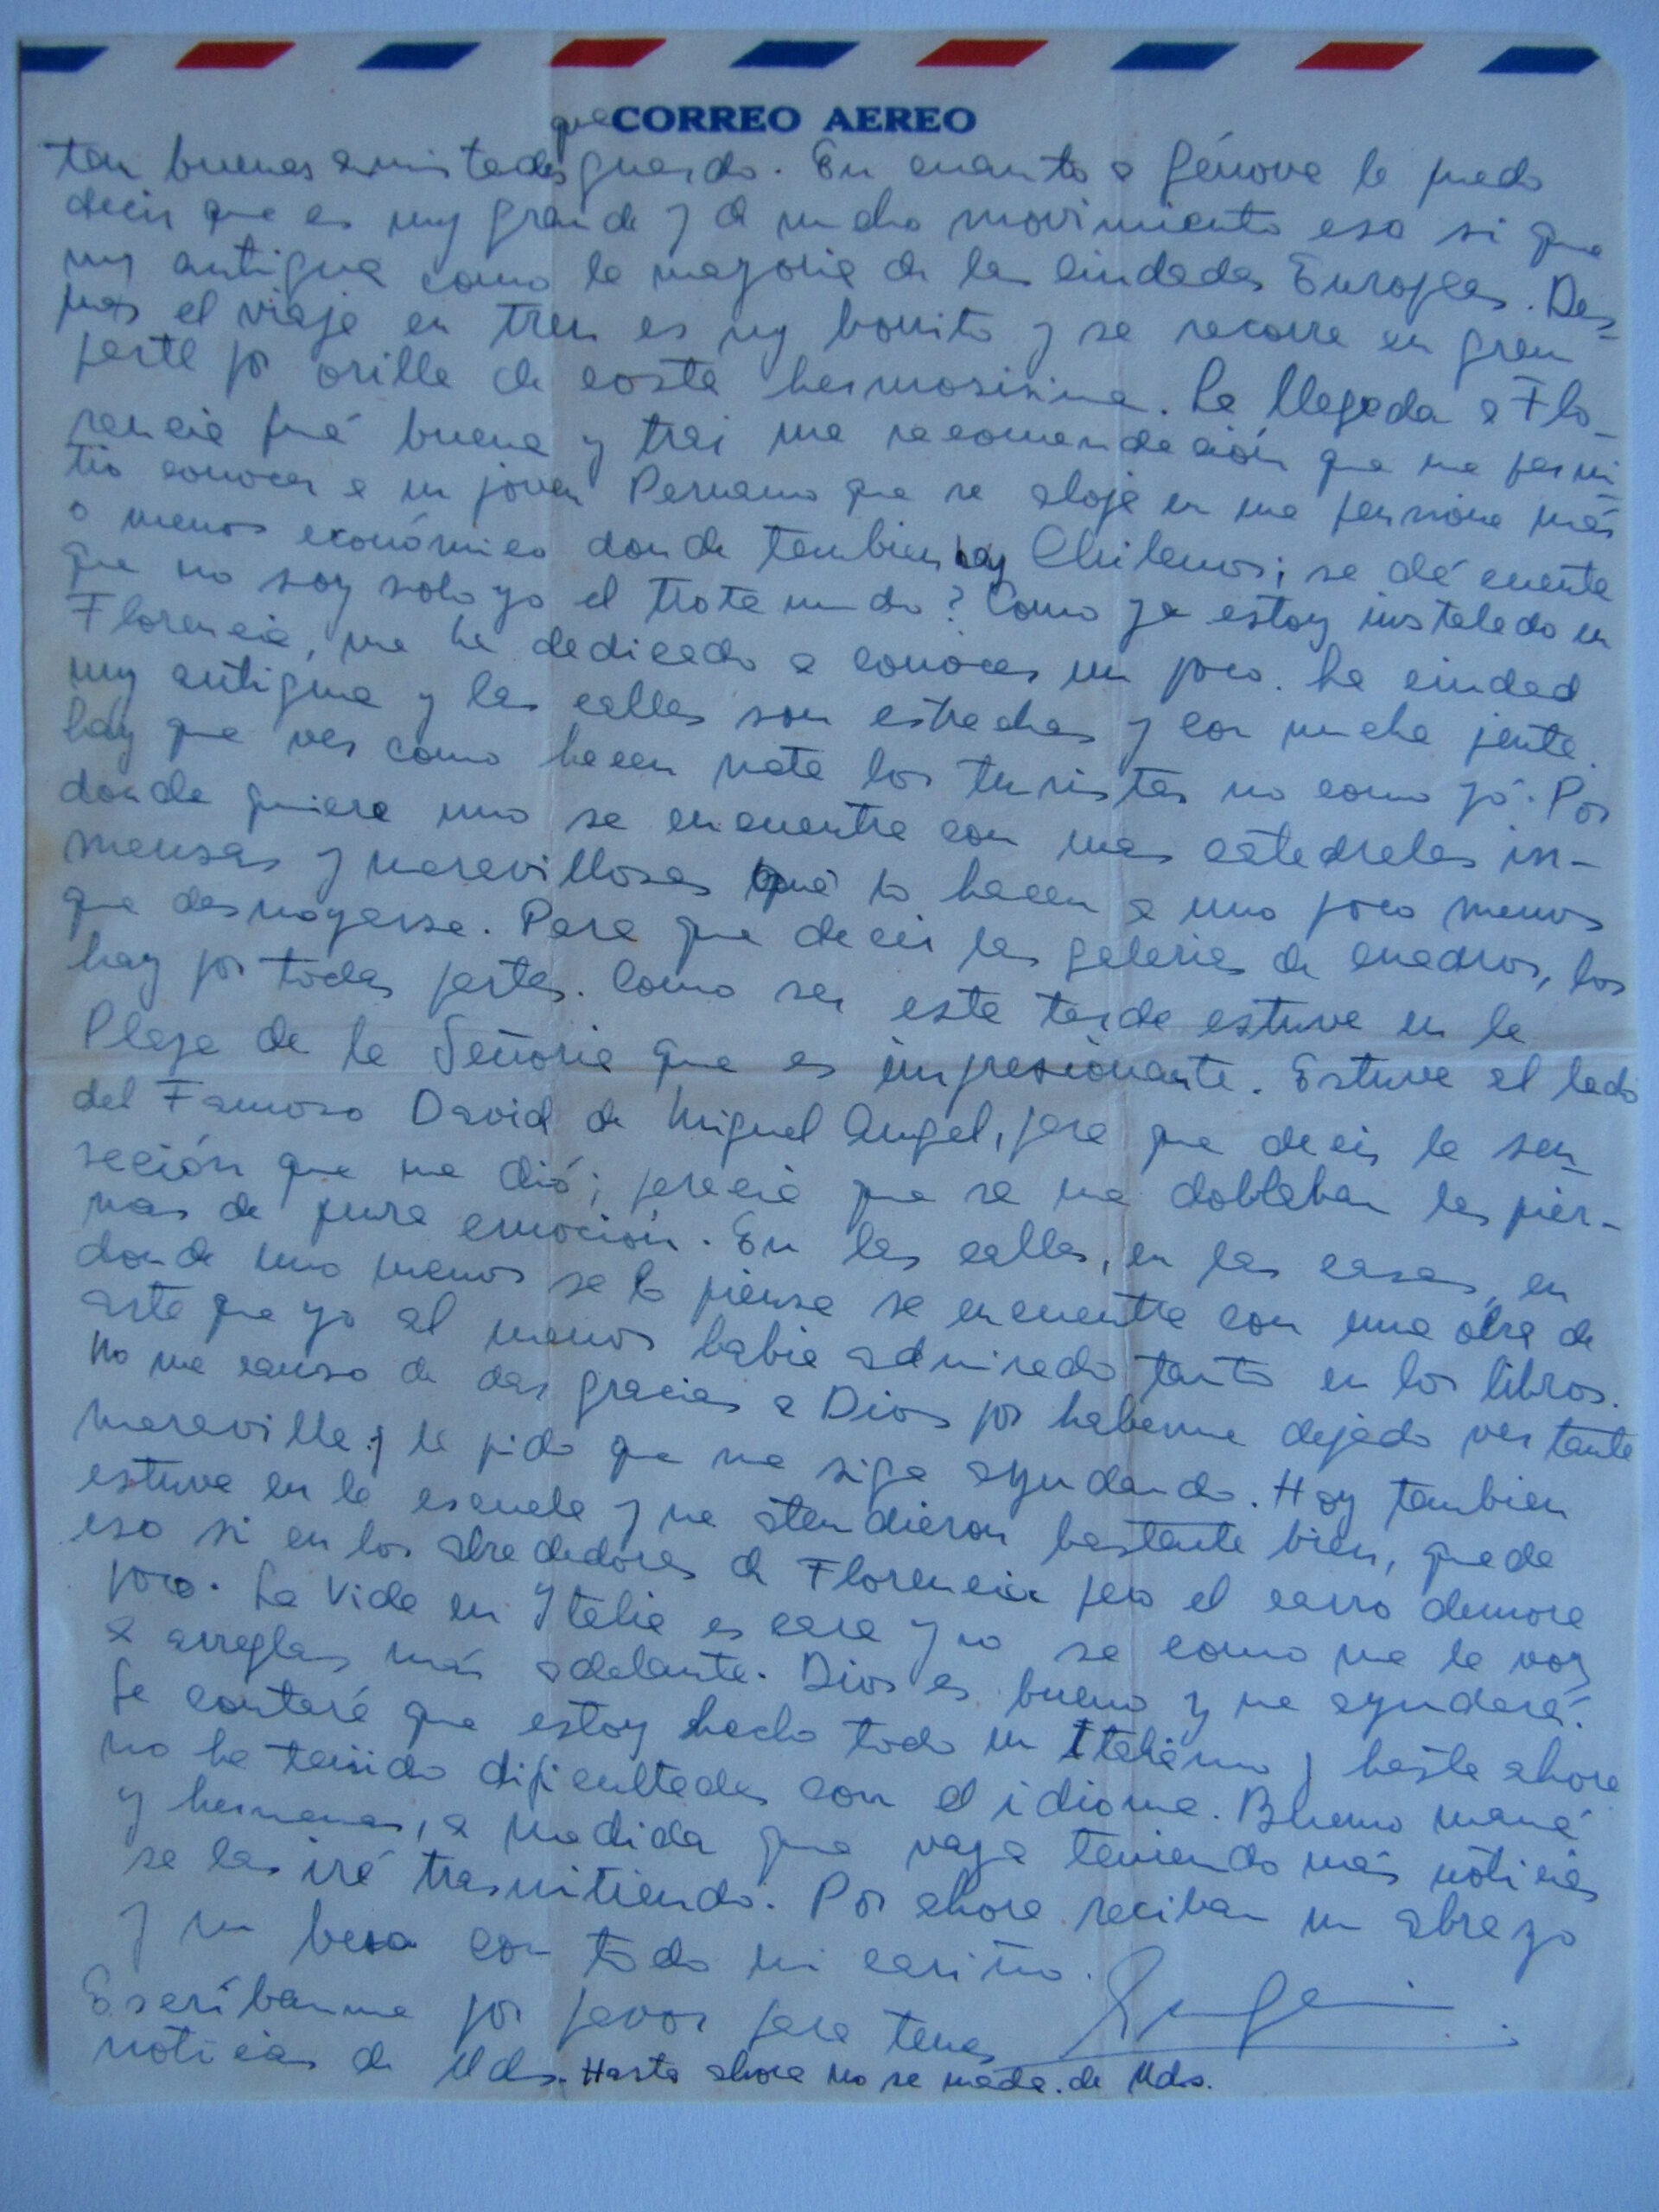 CORREO AEREO
que
tan buenas amistades guardo. En cuanto a Génova le puedo
decir que es muy grande y de mucho movimiento eso si que
muy antigua como la mayoria de las ciudades Europeas. Des-
pues el viaje en tren es muy bonito y se recorre en gran
parte por orilla de costa hermosisima. La llegada a Flo-
rencia fué buena y traj una recomendación que me permi
tio conocer a un joven Peruano que se aloja en una pensione más
o menos económico donde tambien hay Chilenos; se dá cuenta
que no soy solo yo el trota mundo? Como ya estoy instalado en
Florencia, me he dedicado a conocer un poco. La ciudad
muy antigua y las calles son estrechas y con mucha jente.
hay que ver como hacen nata los turistas no como yó. Por
donde quiera uno se encuentra con unas catedrales in-
mensas y maravillosas que lo hacen a uno poco menos
que desmayarse. Para que decir las galerias de cuadros, los
hay por todas partes. Como ser esta tarde estuve en la
Plaza de la Señoria que es impresionante. Estuve al lado
del Famoso David de Miguel Angel, para que decir la sen-
sación que me dió; parecia que se me doblaban las pier-
nas de pura emoción. En las calles, en las casas, en
donde uno menos se lo piensa se encuentra con una obra de
arte que yo al menos habia admirado tanto en los libros.
No me canso de dar gracias a Dios por haberme dejado ver tanta
maravilla y le pido que me siga ayudando. Hoy tambien
estuve en la escuela y me atendieron bastante bien, queda
eso si en los alrededores de Florencia pero el carro demora
poco. La vida en Italia es cara y no se como me le voy
a arreglar más adelante. Dios es bueno y me ayudará.
Le contaré que estoy hecho todo un Italiano y hasta ahora
no he tenido dificultades con el idioma. Bueno mamá
y hermanas, a medida que vaya teniendo más noticias
se las iré trasmitiendo. Por ahora reciban un abrazo
y un beso con todo mi cariño.
Escríbanme por favor para tener
noticias de Uds. Hasta ahora no se nada de Uds.